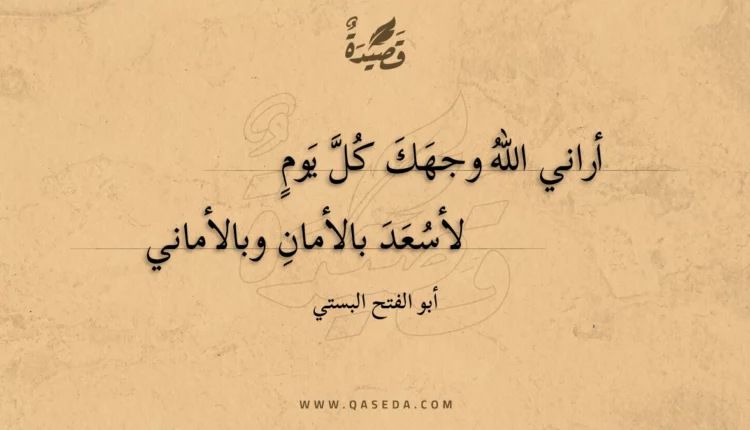 قَصِيْدَةٌ
أراني اللهُ وجهَكَ كُلَّ يَومٍ
لأسُعَدَ بالأمانِ وبالأماني
أبو الفتح البستي
WWW.QASEDA.COM